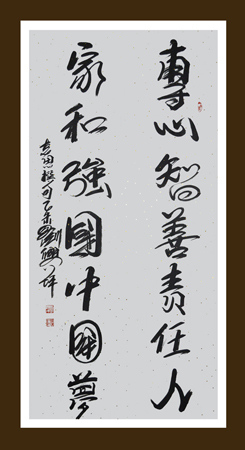 專心智善責任人
家和強國中國夢
撰句乙未劉興